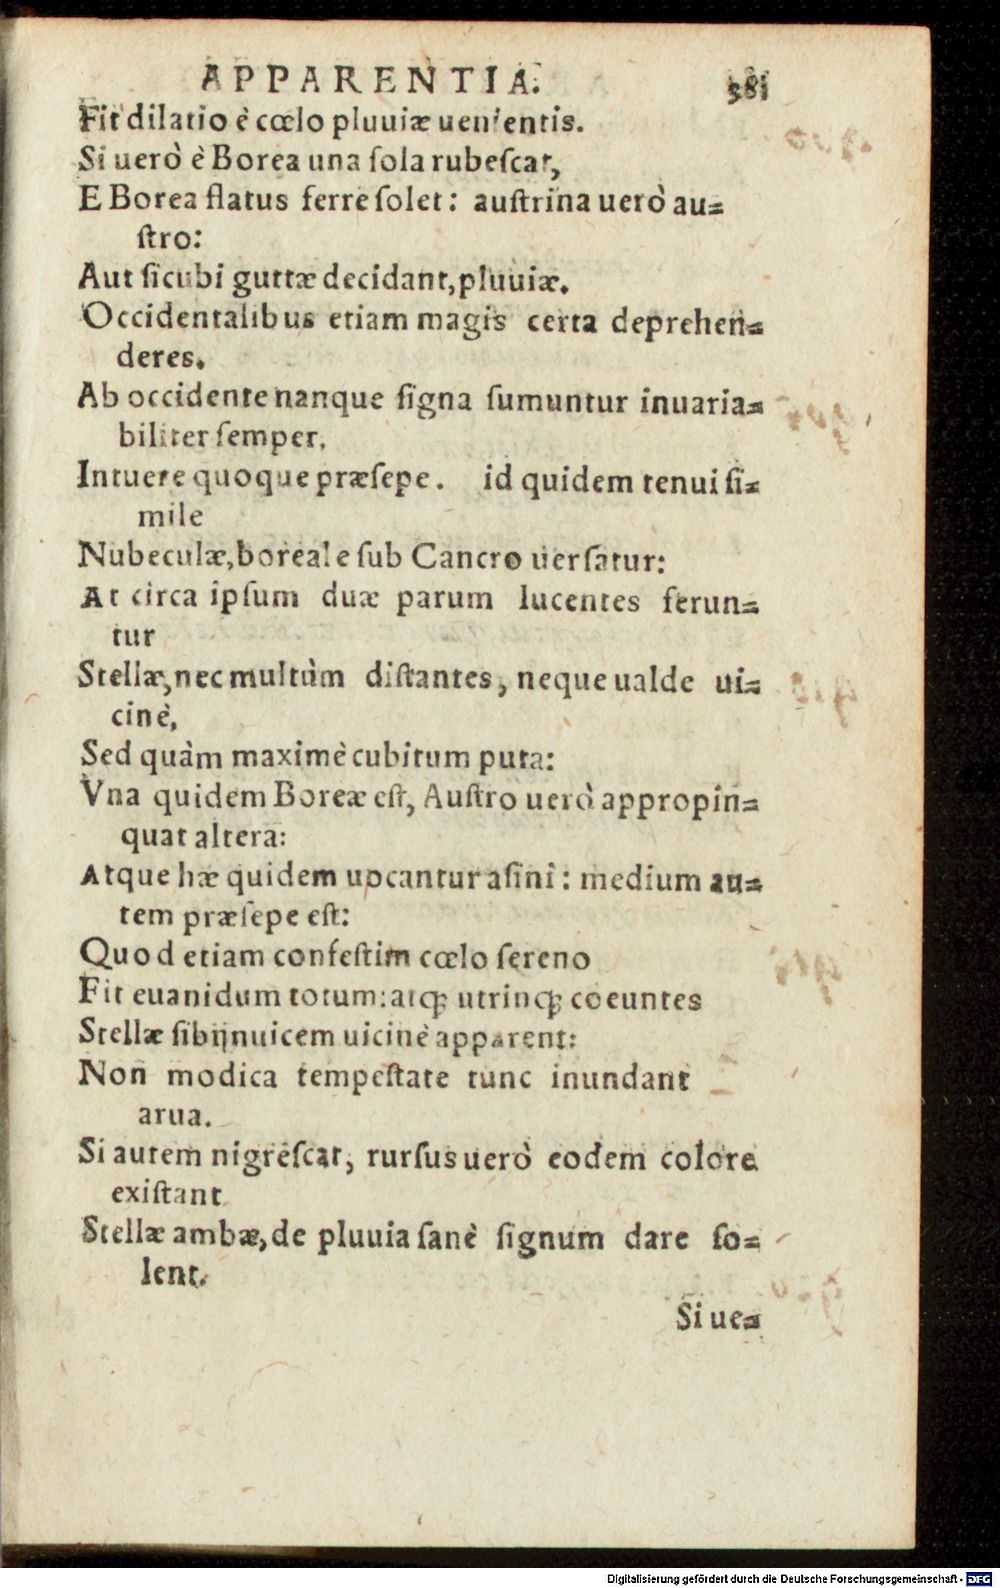 APPARENTIA. 381
Fit dilatio è cœlo pluuiæ uenientis.
Si uerò è Borea una ſola rubeſcat,
E Borea flatus ferre ſolet: auſtrina uerò au⸗
ſtro:
Aut ſicubi guttæ decidant, pluuiæ.
Occidentalibus etiam magis certa deprehen⸗
deres.
Ab occidente nanque ſigna ſumuntur inuaria⸗
biliter ſemper.
Intuere quoque præſepe. id quidem tenui ſi⸗
mile
Nubeculæ, boreale ſub Cancro uerſatur:
At circa ipſum duæ parum lucentes ferun⸗
tur
Stellæ, nec multùm diſtantes, neque ualde ui⸗
cinè,
Sed quàm maximè cubitum puta:
Vna quidem Boreæ eſt, Auſtro uerò appropin⸗
quat altera:
Atque hæ quidem uocantur aſini: medium au⸗
tem præſepe eſt:
Quod etiam confeſtim cœlo ſereno
Fit euanidum totum: atq; utrinq; coeuntes
Stellæ ſibijnuicem uicinè apparent:
Non modica tempeſtate tunc inundant
arua.
Si autem nigreſcat, rurſus uerò eodem colore
exiſtant
Stellæ ambæ, de pluuia ſanè ſignum dare ſo⸗
lent.
Si ue⸗
Digitalisierung gefördert durch die Deutsche Forschungsgemeinschaft - DFG